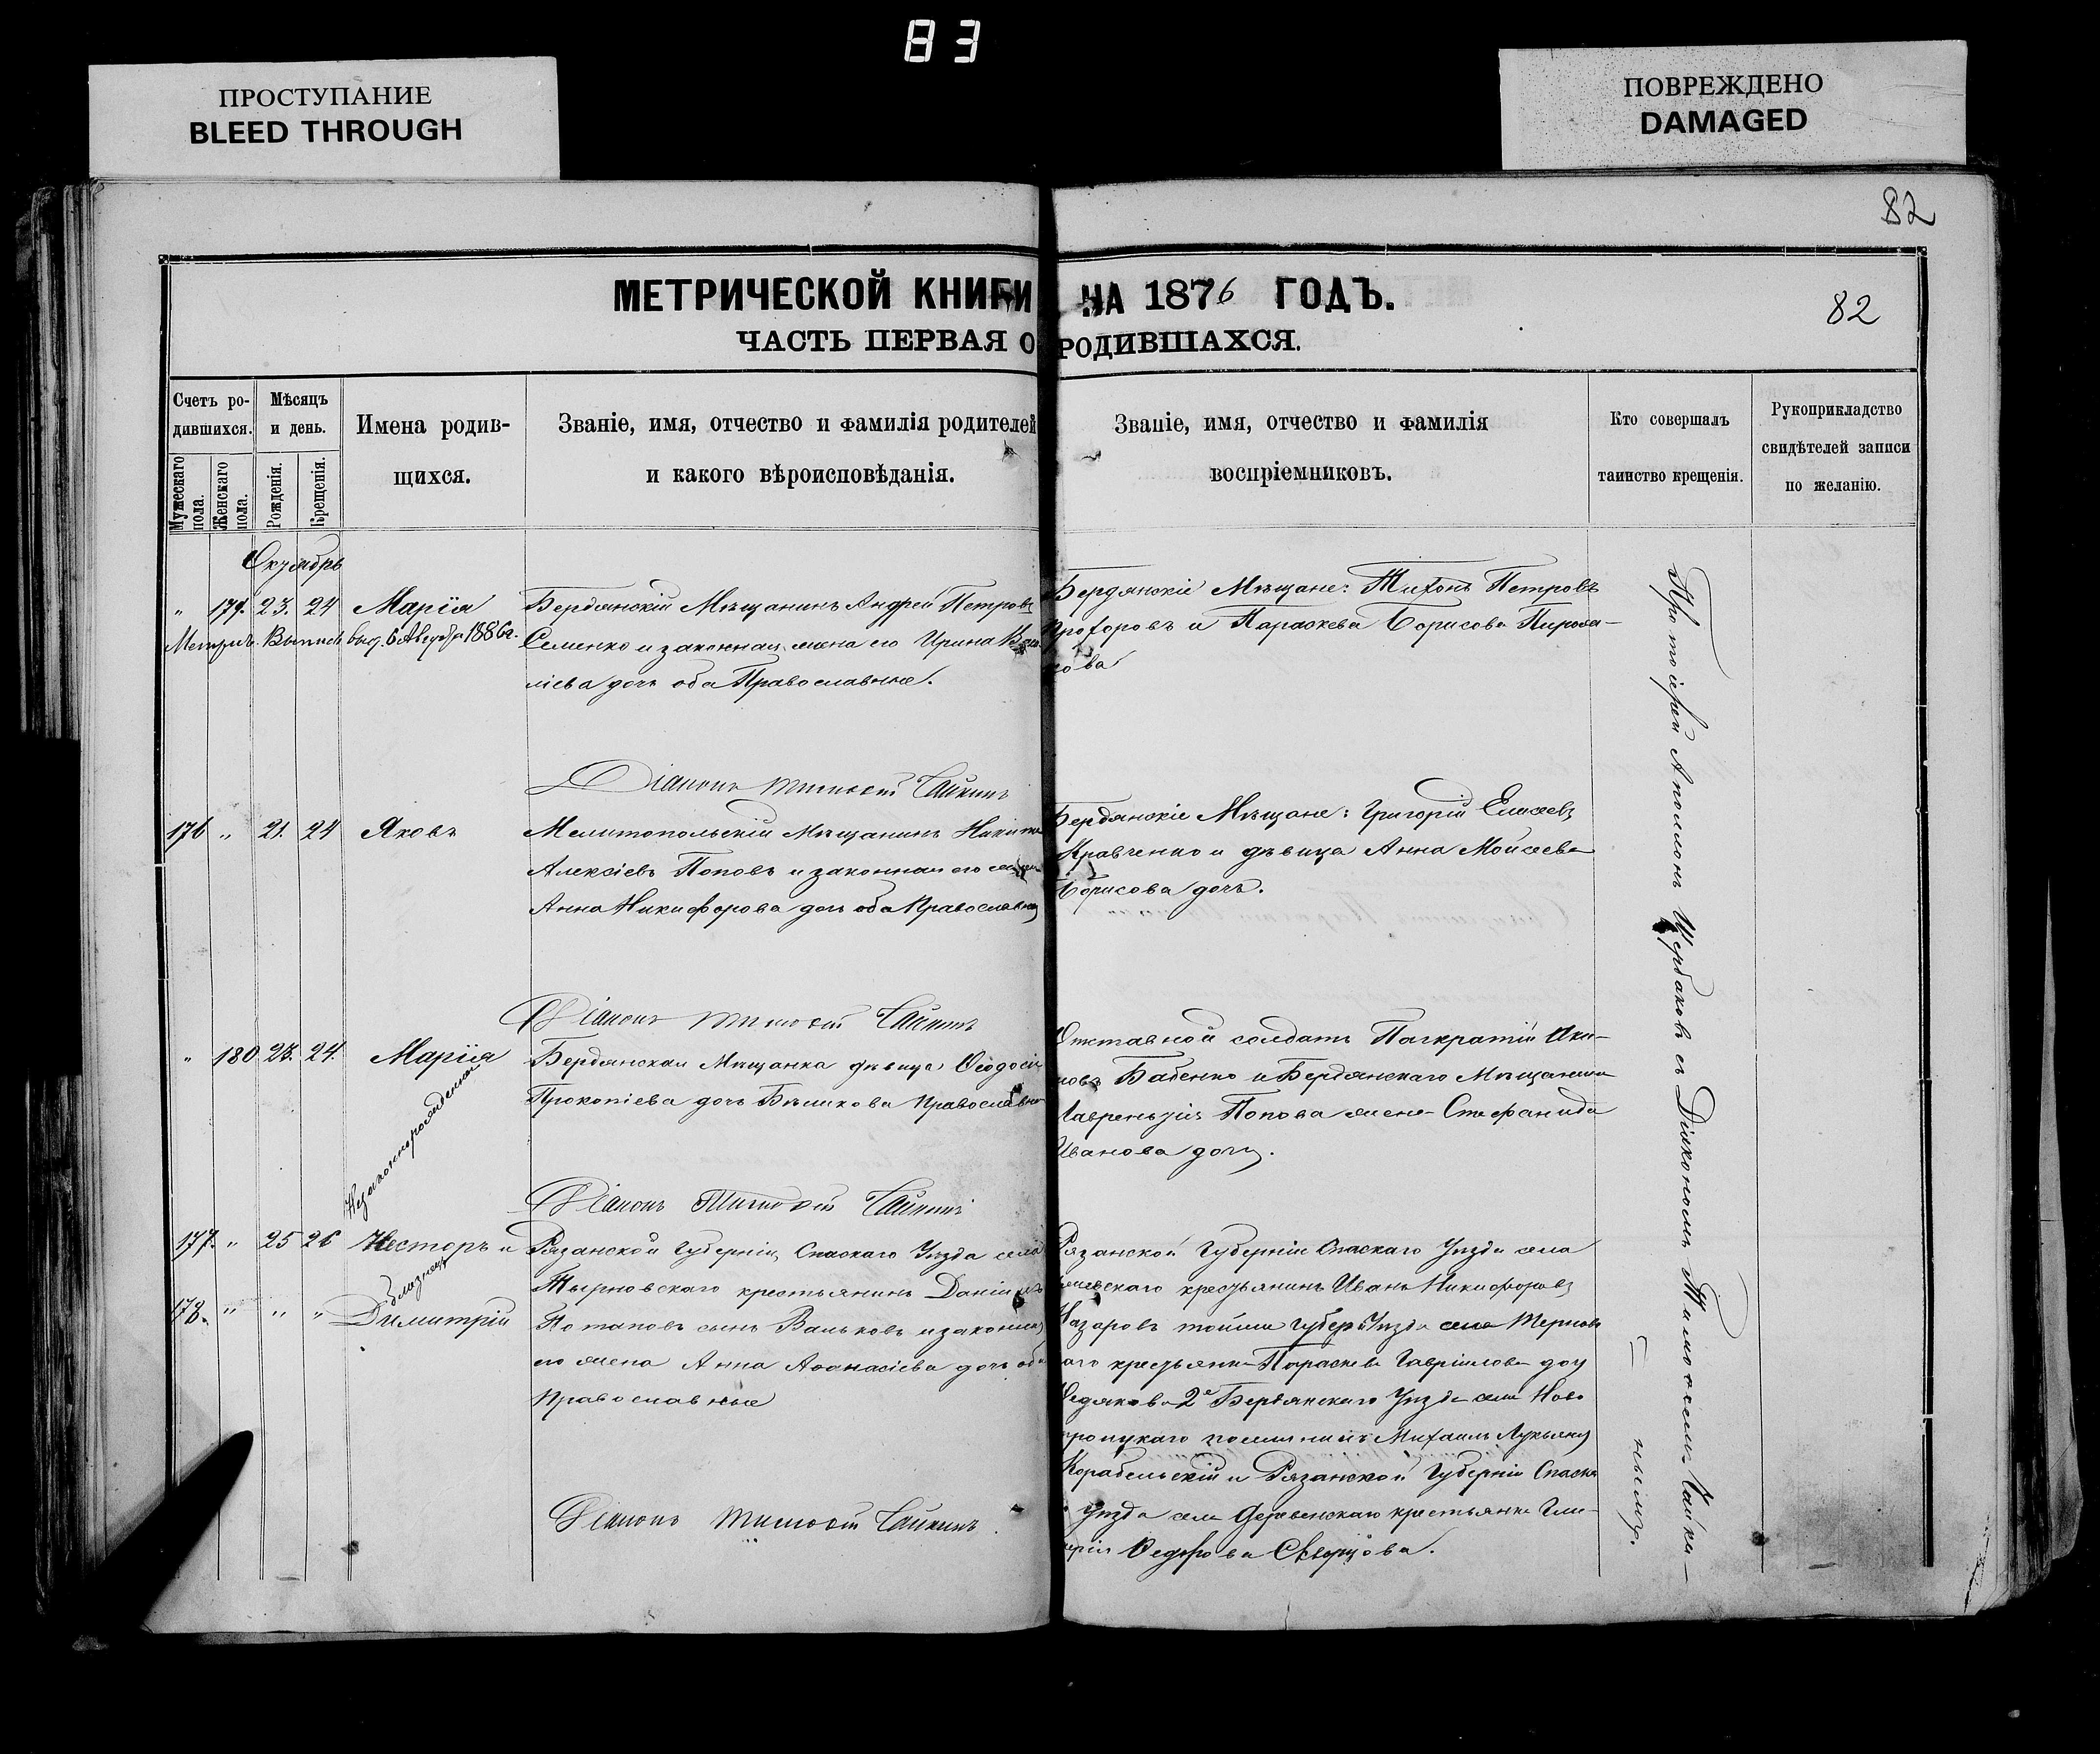 83
ПРОСТУПАНИЕ
BLEED THROUGH
ПОВРЕЖДЕНО
DAMAGED
82
МЕТРИЧЕСКОЙ КНИГИ НА 1876 ГОДЪ.
82
ЧАСТЬ ПЕРВАЯ О РОДИВШАХСЯ.
Счетъ ро-
дившихся.
Мужескаго пола.
Женскаго пола.
Мѣсяцъ
и день.
Рожденія.
Крещенія.
Имена родив-
щихся.
Званіе, имя, отчество и фамилія родителей
и какого вѣроисповѣданія.
Званіе, имя, отчество и фамилія
воспріемниковъ.
Кто совершалъ
таинство крещенія.
Рукоприкладство
свидѣтелей записи
по желанію.
Октябрь
" 179. 23. 24 Марія
Метрич. Выпись выд. 6 Августа 1886 г.
Бердянскій Мѣщанинъ Андрей Петровъ
Семенко и законная жена его Ирина Васи
ліева дочь оба Православные.
Бердянскіе Мѣщане: Тихонъ Петровъ
Прохоровъ и Параскева Борисова
кова
Діаконъ Тимофей Чайкинъ
176 " 21. 24 Яковъ
Мелитопольскій Мѣщанинъ Никита
Алексіевъ Поповъ и законная его жена
Анна Никифорова дочь оба Православные
Бердянскіе Мѣщане: Григорій Елисеевъ
Кравченко и дѣвица Анна Моисеева
Борисова дочь.
Діаконъ Тимофей Чайкинъ
" 180 23. 24. Марія
Незаконнорожденная
Бердянская Мѣщанка дѣвица Ѳеодосія
Прокопіева дочь Бѣликова Православная
Отставной солдатъ Панкратій Аки-
мовъ Бабенко и Бердянскаго Мѣщанина
Лаврентія Попова жена Стефанида
Иванова дочь.
Діаконъ Тимофей Чайкинъ
177. " 25 26 Несторъ и
близнецы
178. " " " Димитрій
Рязанской Губерніи Спаскаго Уѣзда села
Тырновскаго крестьянинъ Даніилъ
Потаповъ сынъ Ваньковъ и законная
его жена Анна Аѳанасіева дочь оба
Православные
Рязанской Губерніи Спаскаго Уѣзда села
крестьянинъ Иванъ Никифоровъ
Назаровъ тойже Губер. Уѣзда села Тернов
аго крестьянка Параскева Гавріилова дочь
Федякова 2е Бердянскаго Уѣзда села Ново
троицкаго поселянинъ Михаилъ Лукьяновъ
Корабельскій и Рязанской Губерніи Спаска
Уѣзда села Деревенскаго крестьянка Гли-
керія Ѳедорова Скворцова.
Діаконъ Тимофей Чайкинъ.
Протоіерей Аполлонъ Щербаковъ съ Діакономъ Тимофеемъ Чайки-
нымъ.